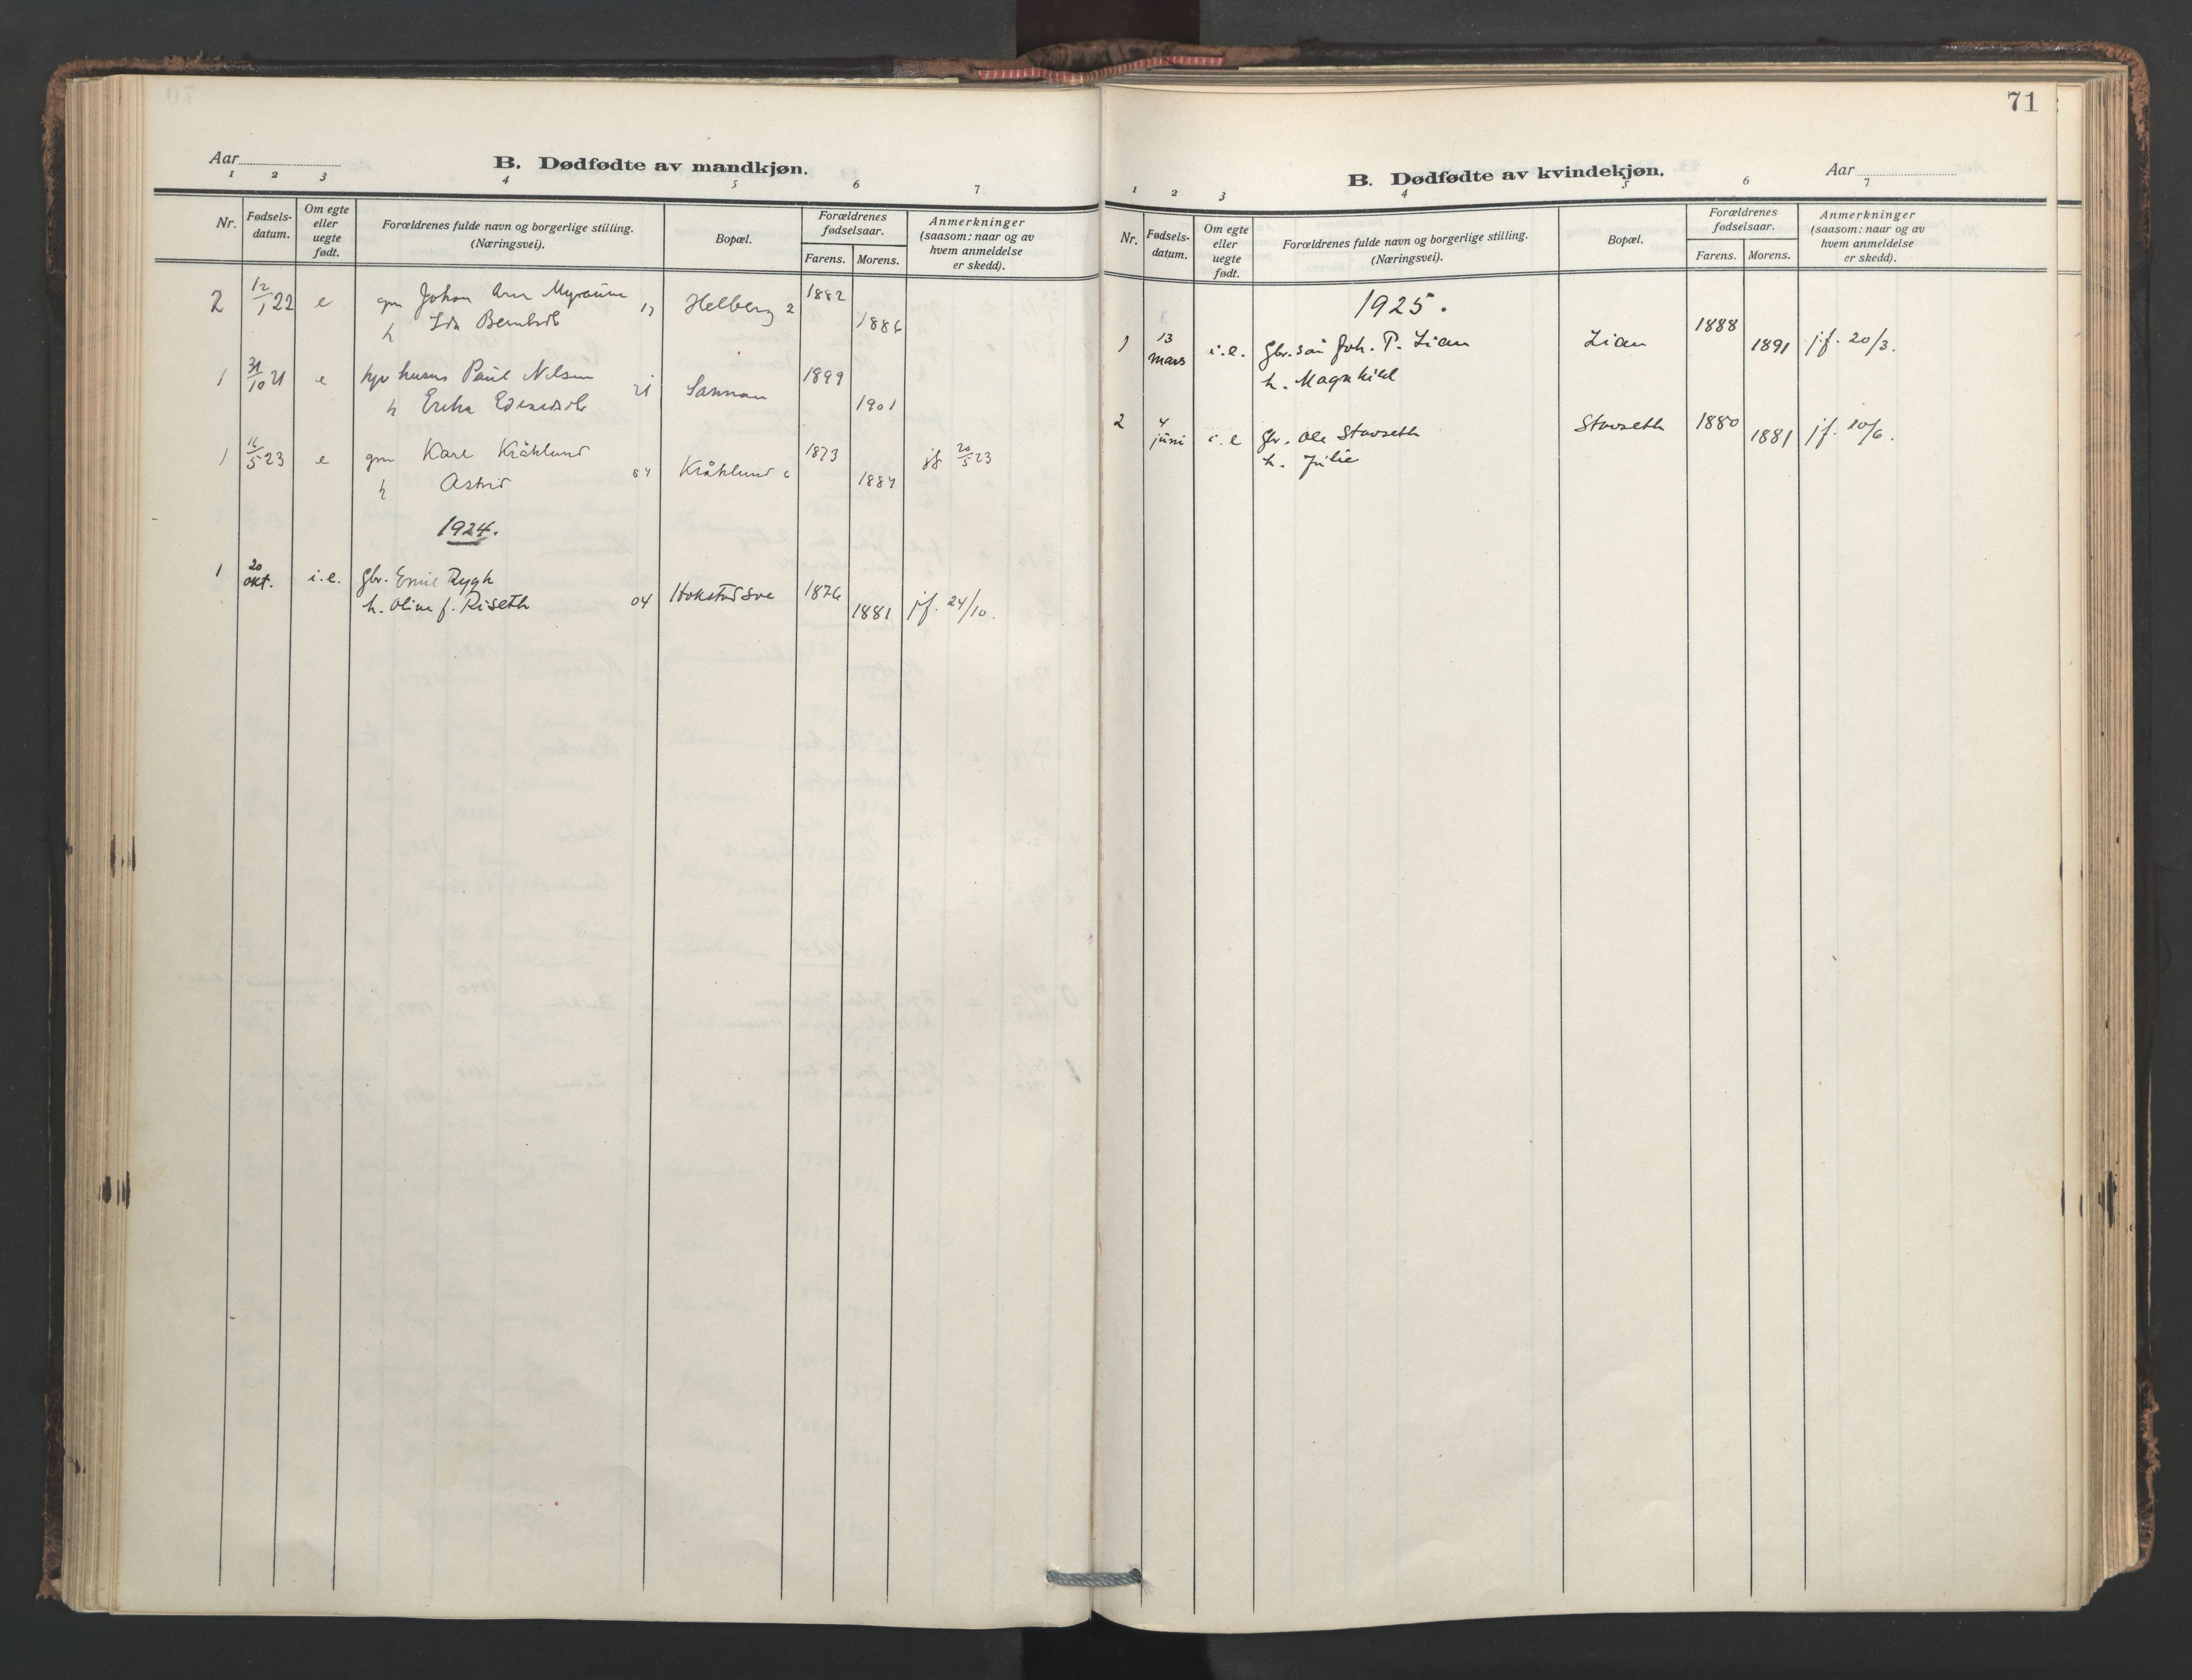 Aar
B. Dødfødte av mandkjøn.
1 2 3 4 5 6 7
Nr.
Fødsels-
datum.
Om egte
eller
uegte
født.
Forældrenes fulde navn og borgerlige stilling.
(Næringsvei).
Bopæl.
Forældrenes
fødselsaar.
Farens. Morens.
Anmerkninger
(saasom: naar og av
hvem anmeldelse
er skedd).
2 12/1 22 e gm Johan Arn 13 Helberg 2 1882
h Ida 1886
1 31/10 21 e Paul Nilsen 21 Sannan 1899
h Erika 1901
1 16/5 23 e gm Karl Kråklund 04 Kråklund 1873 jf 20/5 23
h Astrid 1884
1924.
1 20 okt. i.e. gbr. Emil Rygh Hokstad 1876
h. Oline f. Riseth 04 1881 jf. 24/10.
71
B. Dødfødte av kvindekjøn.
Aar
1 2 3 4 5 6 7
Nr.
Fødsels-
datum.
Om egte
eller
uegte
født.
Forældrenes fulde navn og borgerlige stilling.
(Næringsvei).
Bopæl.
Forældrenes
fødselsaar.
Farens. Morens.
Anmerkninger
(saasom: naar og av
hvem anmeldelse
er skedd).
1925.
1 13 mars i.e. gbr. Joh. P. Lian Lian 1888 1891 jf. 20/3.
h. Magnhild
2 4 juni i.e gbr. Ole Stavseth Stavseth 1880 1881 jf. 10/6.
h. Julie